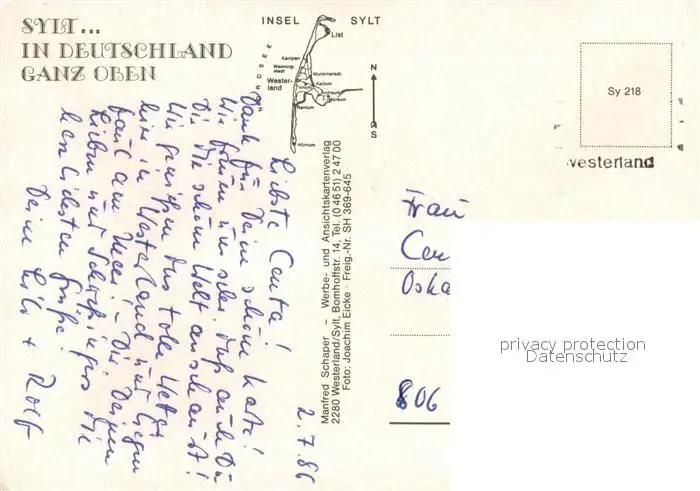 SYLT...
IN DEUTSCHLAND
GANZ OBEN
INSEL SYLT
NORDSEE
List
Kampen
Wenning-
stedt
Munkmarsch
Wester-
land
Keitum
Tinnum
Archsum
Morsum
Rantum
Hörnum
N
S
2.7.86
Liebste Centa!
Dank für Deine schöne Karte!
Wir freuen uns sehr, daß auch Du
Dir die schöne Welt anschaust!
Wir genießen das tolle Wetter
hier in Westerland und liegen
faul am Meer! – Die Deinen
Lieben und
herzlichsten Grüße!
Deine Lili + Rolf
Manfred Schaper – Werbe- und Ansichtskartenverlag
2280 Westerland/Sylt, Bomhoffstr. 14, Tel. (0 46 51) 2 47 00
Foto: Joachim Eicke · Freig.-Nr. SH 369-645
Sy 218
Westerland
Frau
Cen
Oska
806
privacy protection
Datenschutz